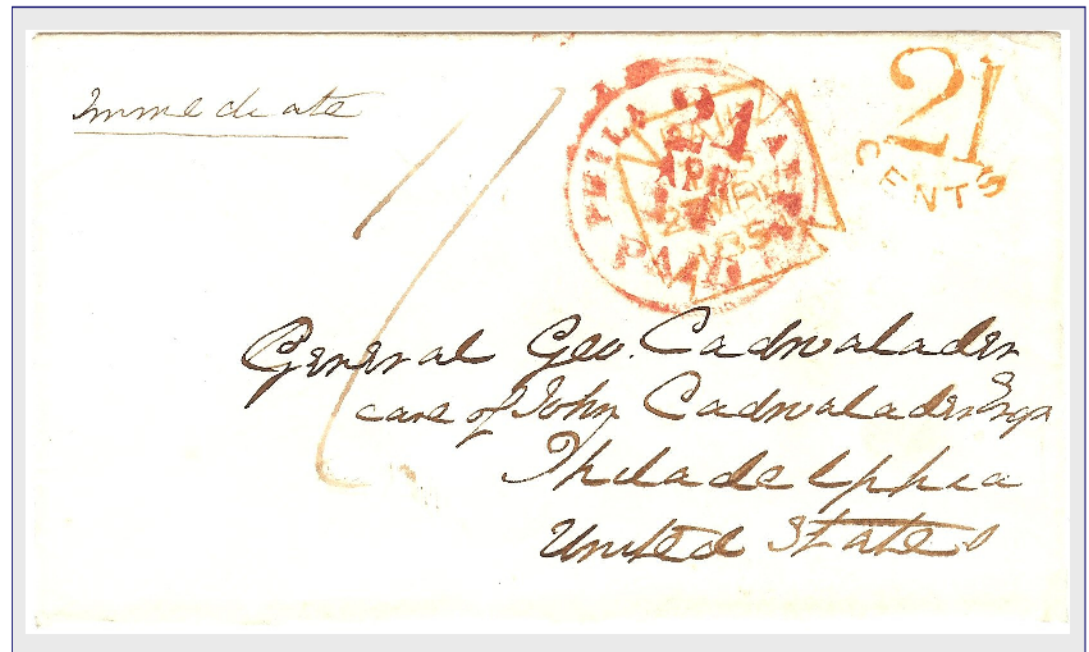 Immediate
21
CENTS
PHILA
21
APR
PAID
General Geo. Cadwalader
care of John Cadwalader Esqr
Philadelphia
United States